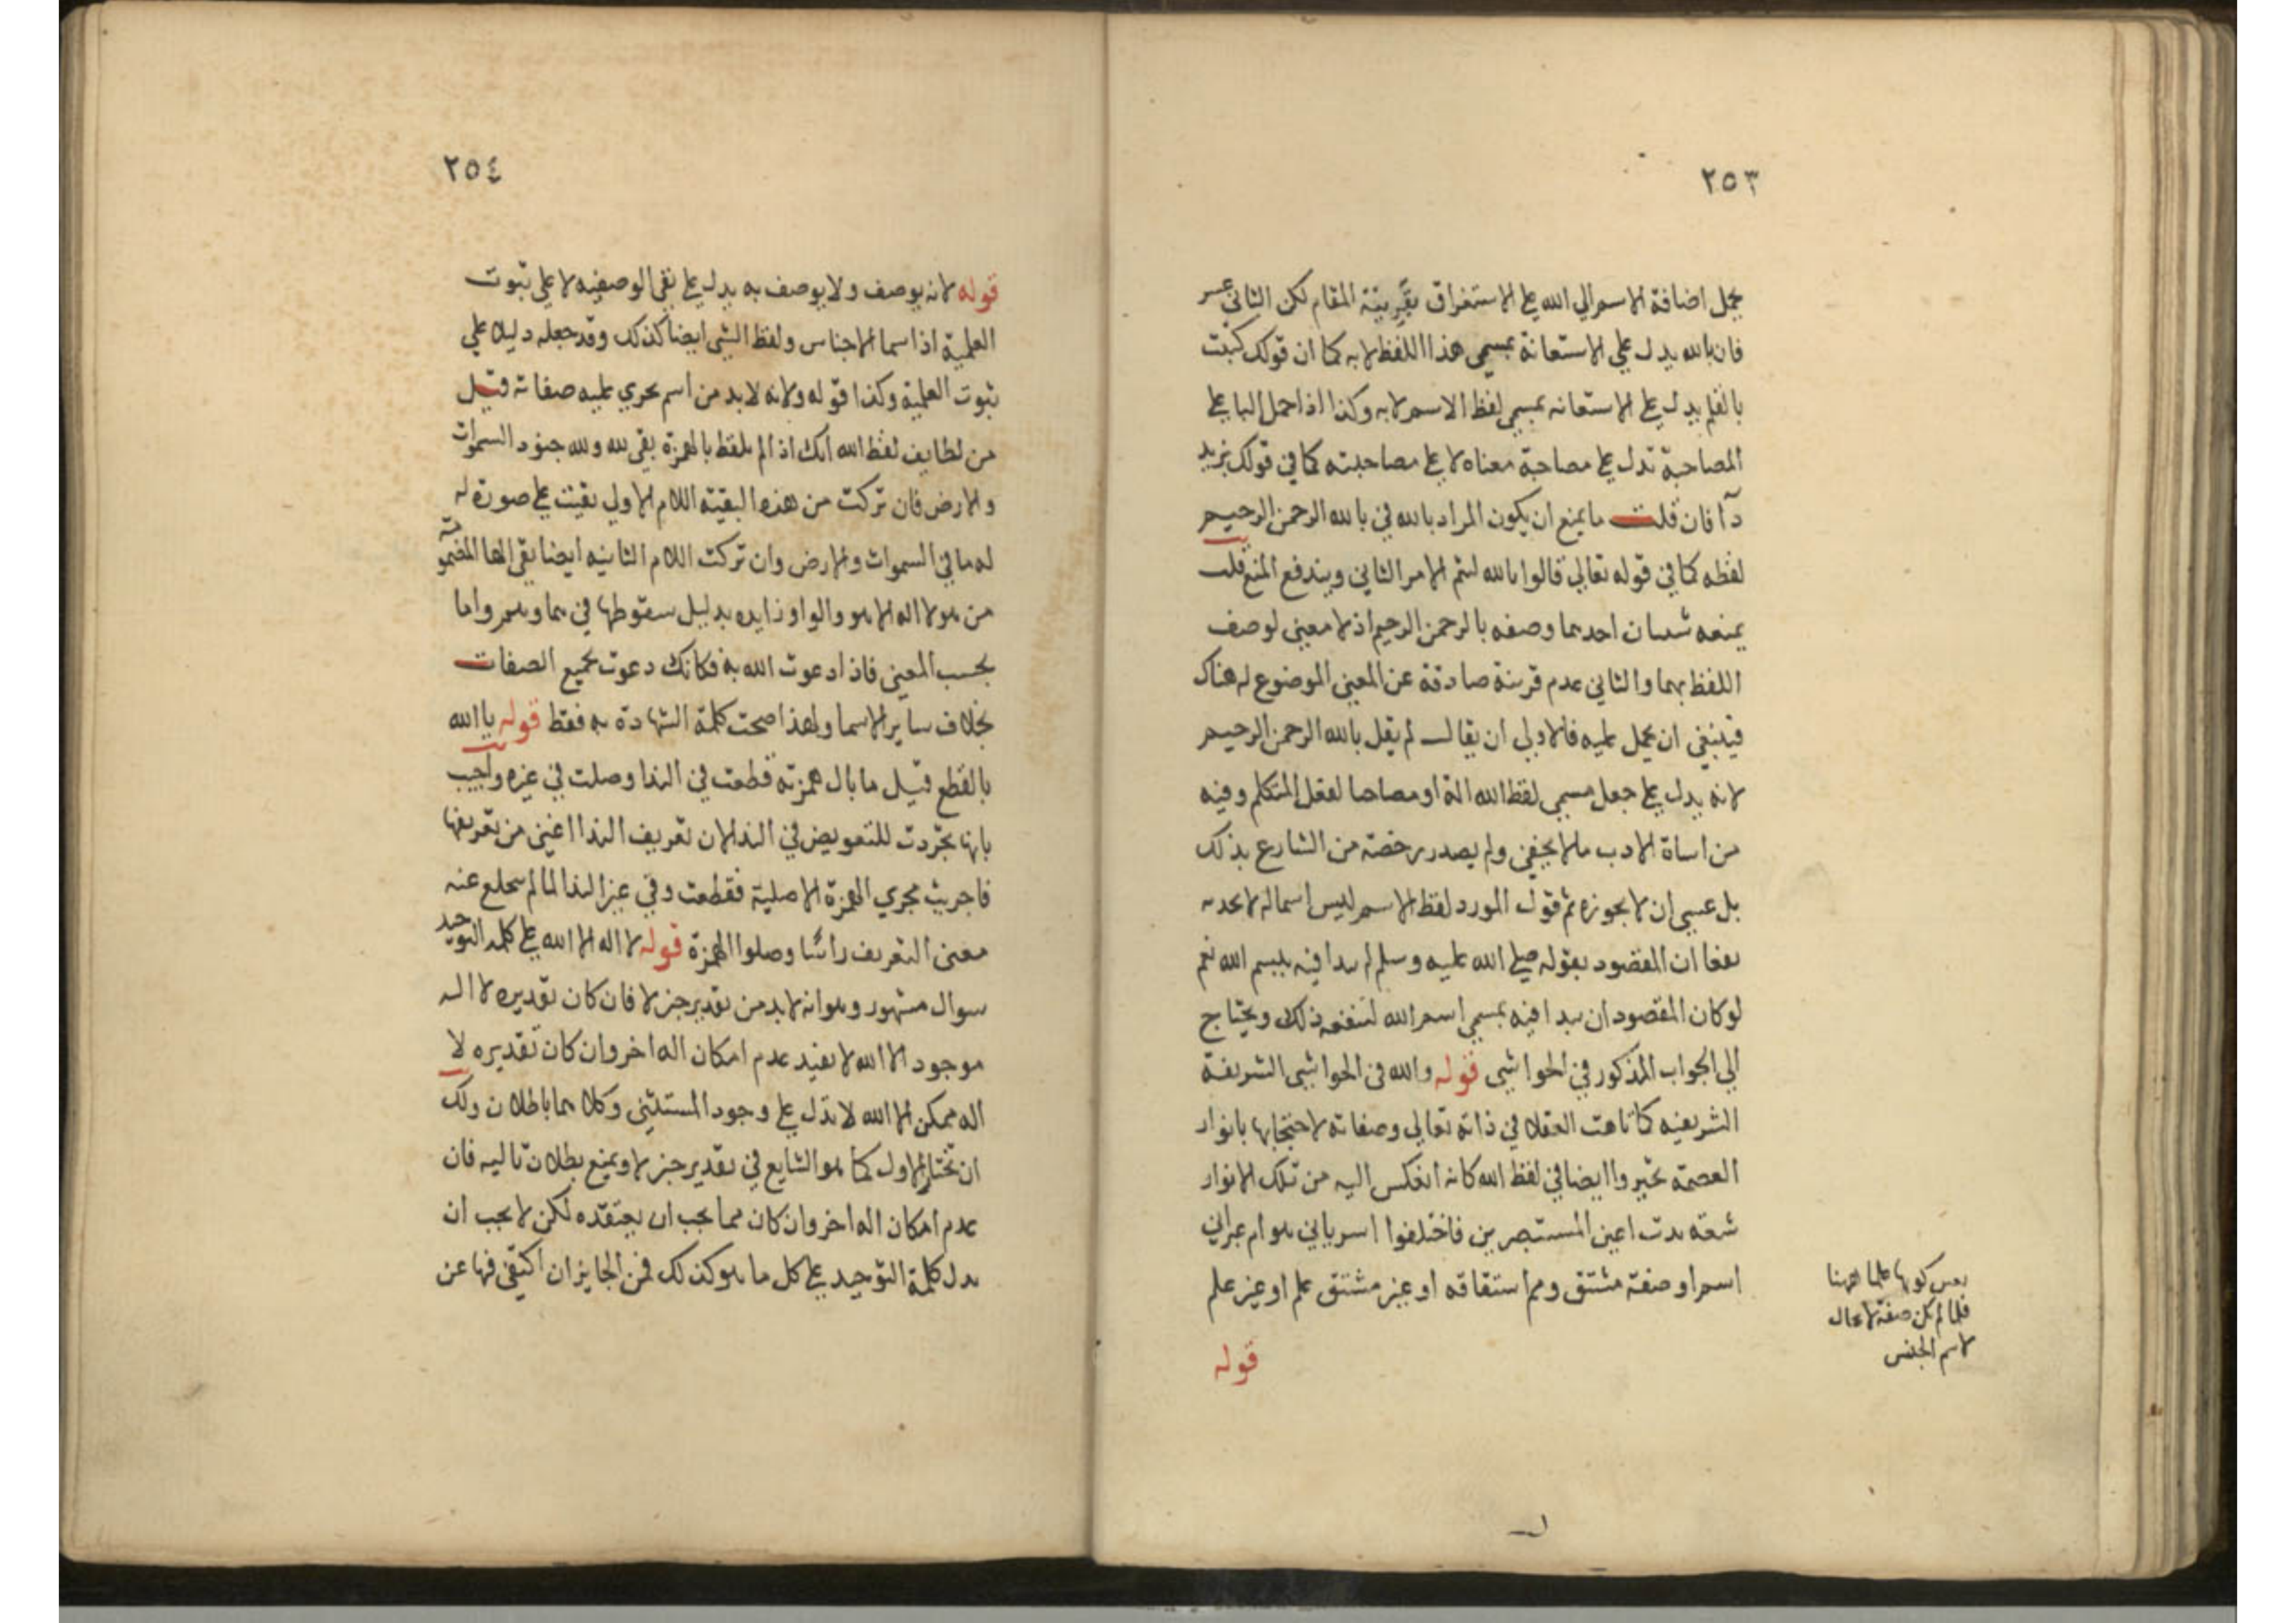 ٢٥٣
يحمل اضافة الاسم الي الله علي الاستغراق بقرينة المقام لكن الثاني عسر
فان بالله يدل علي الاستعانة بمسمي هذا اللفظ لا به كما ان قولك كتبت
بالقلم يدل علي الاستعانه بمسمي لفظ الاسم لا به وكذا اذا حمل البا علي
المصاحبة تدل علي مصاحبة معناه لا علي مصاحبته كما في قولك بزيد
دآ فان قلت ما يمنع ان يكون المراد بالله في بالله الرحمن الرحيم
لفظه كما في قوله تعالي قالوا بالله ليتم الامر الثاني ويندفع المنع قلت
يمنعه شيان احدهما وصفه بالرحمن الرحيم اذ لا معني لوصف
اللفظ بهما والثاني عدم قرينة صادقة عن المعني الموضوع له هناك
فينبغي ان يحمل عليه فالاولي ان يقال لم يقل بالله الرحمن الرحيم
لانه يدل علي جعل مسمي لفظ الله الة او مصاحبا لفعل المتكلم وفيه
من اساة الادب ما لا يخفي ولم يصدر رخصة من الشارع بذلك
بل عسي ان لا يجوزه ثم قول المورد لفظ الاسم ليس اسما له لا يجديه
نفعا ان المقصود بقوله صلي الله عليه وسلم لم يبدا فيه ببسم الله نعم
لو كان المقصود ان يبدا فيه بمسمي اسم الله لنفعه ذلك ويحتاج
الي الجواب المذكور في الحواشي قوله والله في الحواشي الشريفة
الشريفيه كما تاهت العقلا في ذاته تعالي وصفاته لاحتجابها بانوار
العصمة تحيروا ايضا في لفظ الله كانه انعكس اليه من تلك الانوار
شعه بدت اعين المستبصرين فاختلفوا اسرياني هو ام عبراني
اسم او صفة مشتق ومم استقاقه او غير مشتق علم او غير علم
كونها علما ههنا
فلما لم يكن صفة
لاسم الجنس
قوله
٢٥٤
قوله لانه يوصف ولا يوصف به يدل علي نفي الوصفيه لا علي ثبوت
العلمية اذ اسما الاجناس ولفظ الشي ايضا كذلك وقد جعله دليلا علي
ثبوت العلمية وكذا قوله ولانه لا بد من اسم يحري عليه صفاته قيل
من لطايف لفظ الله انك اذا لم تلفظ بالهمزة بقي لله ولله جنود السموات
والارض فان تركت من هذه البقية اللام الاولي بقيت علي صورة له
له ما في السموات والارض وان تركت اللام الثانيه ايضا بقي الها المضمومة
من هو لا اله الا هو والواو زايده بدليل سقوطها في هما وهم واما
بحسب المعني فاذا دعوت الله به فكانك دعوت بجميع الصفات
بخلاف ساير الاسما ولهذا صحت كلمة الشهادة به فقط قوله يا الله
بالقطع قيل ما بال همزته قطعت في الندا وصلت في غيره واجيب
بانها تجردت للتعويض في الندا لان تعريف الندا اغني من تعريفها
فاجريت مجري الهمزة الاصلية فقطعت وفي غير الندا لما لم ينخلع عنه
معني التعريف راسا وصلوا الهمزة قوله لا اله الا الله علي كلمه التوحيد
سوال مشهور وهو انه لا بد من تقدير خبر لا فان كان تقديره لا اله
موجود الا الله لا يفيد عدم امكان اله اخر وان كان تقديره لا
اله ممكن الا الله لا تدل علي وجود المستثني وكلاهما باطلان ولك
ان تختار الاول كما هو الشايع في تقدير خبر لا ويمنع بطلان تاليه فان
عدم امكان اله اخر وان كان مما يجب ان يعتقده لكن لا يجب ان
يدل كلمة التوحيد علي كل ما هو كذلك فمن الجايز ان اكتفي فيها عن